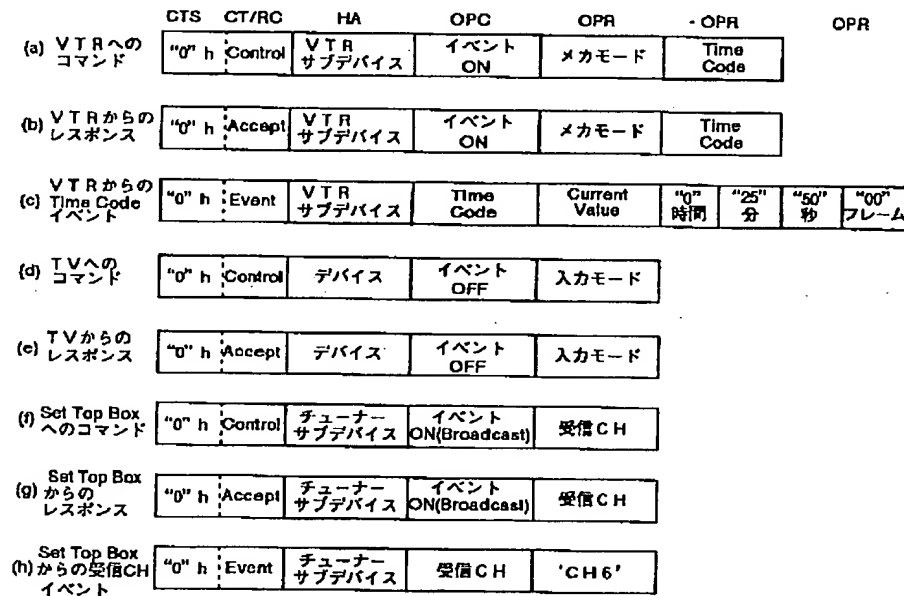 CTS CT/RC HA OPC OPR - OPR OPR
(a) VTRへの
コマンド
“0” h Control
VTR
サブデバイス
イベント
ON
メカモード
Time
Code
(b) VTRからの
レスポンス
“0” h Accept
VTR
サブデバイス
イベント
ON
メカモード
Time
Code
(c) VTRからの
Time Code
イベント
“0” h Event
VTR
サブデバイス
Time
Code
Current
Value
“0”
時間
“25”
分
“50”
秒
“00”
フレーム
(d) TVへの
コマンド
“0” h Control
デバイス
イベント
OFF
入力モード
(e) TVからの
レスポンス
“0” h Accept
デバイス
イベント
OFF
入力モード
(f) Set Top Box
へのコマンド
“0” h Control
チューナー
サブデバイス
イベント
ON(Broadcast)
受信CH
(g) Set Top Box
からの
レスポンス
“0” h Accept
チューナー
サブデバイス
イベント
ON(Broadcast)
受信CH
(h) Set Top Box
からの受信CH
イベント
“0” h Event
チューナー
サブデバイス
受信CH
'CH6'